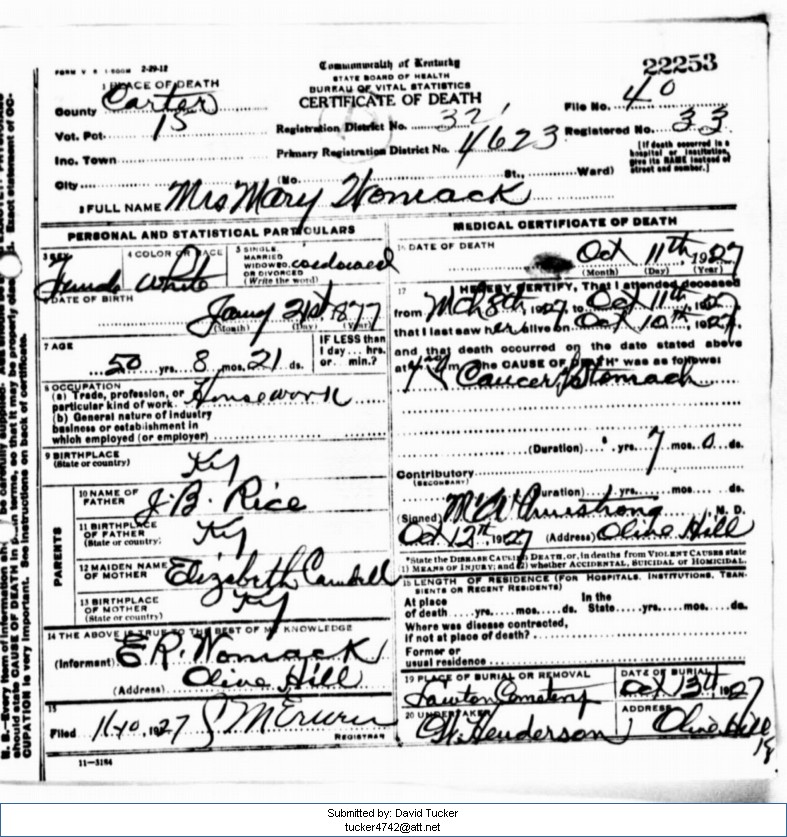 FORM V S 1-500M 2-29-12
Commonwealth of Kentucky
STATE BOARD OF HEALTH
BUREAU OF VITAL STATISTICS
CERTIFICATE OF DEATH
22253
1 PLACE OF DEATH
County Carter
Vot. Pct. 15
Inc. Town
City
Registration District No. 32
Primary Registration District No. 4623
File No. 40
Registered No. 33
[If death occurred in a
hospital or institution,
give its NAME instead of
street and number.]
(No. St., Ward)
2 FULL NAME Mrs Mary Womack
PERSONAL AND STATISTICAL PARTICULARS
3 SEX
Female
4 COLOR OR RACE
White
5 SINGLE,
MARRIED
WIDOWED, widowed
OR DIVORCED
(Write the word)
6 DATE OF BIRTH
Jany 21st, 1877
(Month) (Day) (Year)
7 AGE
50 yrs. 8 mos. 21 ds.
IF LESS than
1 day... hrs.
or... min.?
8 OCCUPATION
(a) Trade, profession, or
particular kind of work Housework
(b) General nature of industry
business or establishment in
which employed (or employer)
9 BIRTHPLACE
(State or country) Ky
PARENTS
10 NAME OF
FATHER J. B. Rice
11 BIRTHPLACE
OF FATHER Ky
(State or country)
12 MAIDEN NAME
OF MOTHER Elizabeth
13 BIRTHPLACE
OF MOTHER Ky
(State or country)
14 THE ABOVE IS TRUE TO THE BEST OF MY KNOWLEDGE
(Informant) E R. Womack
(Address) Olive Hill
15
Filed 11-10, 1927
REGISTRAR
11-3184
MEDICAL CERTIFICATE OF DEATH
16 DATE OF DEATH
Oct 11th, 1927
(Month) (Day) (Year)
17 I HEREBY CERTIFY, That I attended deceased
from Mch 8th, 1927, to Oct 11th, 1927,
that I last saw her alive on Oct 10th, 1927,
and that death occurred on the date stated above
at m. The CAUSE OF DEATH* was as follows:
Cancer Stomach
(Duration) yrs. 7 mos. 0 ds.
Contributory
(SECONDARY)
(Duration) yrs. mos. ds.
(Signed) Armstrong, M. D.
Oct 12th 1927 (Address) Olive Hill
*State the DISEASE CAUSING DEATH, or, in deaths from VIOLENT CAUSES state
(1) MEANS OF INJURY; and (2) whether ACCIDENTAL, SUICIDAL or HOMICIDAL.
18 LENGTH OF RESIDENCE (FOR HOSPITALS, INSTITUTIONS, TRAN-
SIENTS OR RECENT RESIDENTS)
At place In the
of death yrs. mos. ds. State yrs. mos. ds.
Where was disease contracted,
if not at place of death?
Former or
usual residence
19 PLACE OF BURIAL OR REMOVAL
Lawton Cemetery
DATE OF BURIAL
Oct 13th, 1927
20 UNDERTAKER
Henderson
ADDRESS
Olive Hill
Ky
Submitted by: David Tucker
tucker4742@att.net